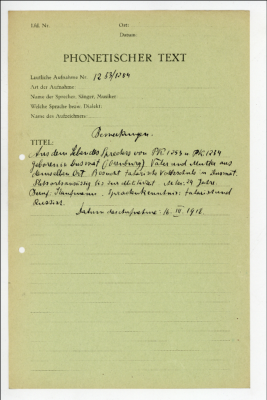 Lfd. Nr.
Ort:
Datum:
PHONETISCHER TEXT
Lautliche Aufnahme Nr. 1253/1254
Art der Aufnahme:
Name des Sprechers, Sängers, Musiker
Welche Sprache bezw. Dialekt:
Name des Aufzeichners:
Bemerkungen.
TITEL:
Aus dem Leben des Sprechers von PK 1253 und PK 1254
geboren in (Orenburg) Vater und Mutter aus
demselben Ort. Besucht tatarische Volksschule in
bis zur Militärzeit. Alter: 29 Jahre.
Beruf: Kaufmann. Sprachkenntnisse: tatarisch und
Russisch.
Datum des Aufnahme: 16. III 1918